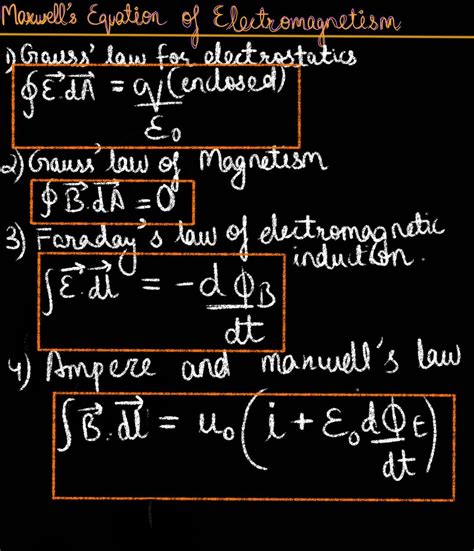 Maxwell's Equation of Electromagnetism
1) Gauss' law for electrostatics
∮E⃗.dA⃗ = q(enclosed)/ε₀
2) Gauss' law of Magnetism
∮B⃗.dA⃗ = 0
3) Faraday's law of electromagnetic
induction.
∫E⃗.dl⃗ = -dϕ_B/dt
4) Ampere and maxwell's law
∫B⃗.dl⃗ = u₀(i + ε₀dϕ_E/dt)